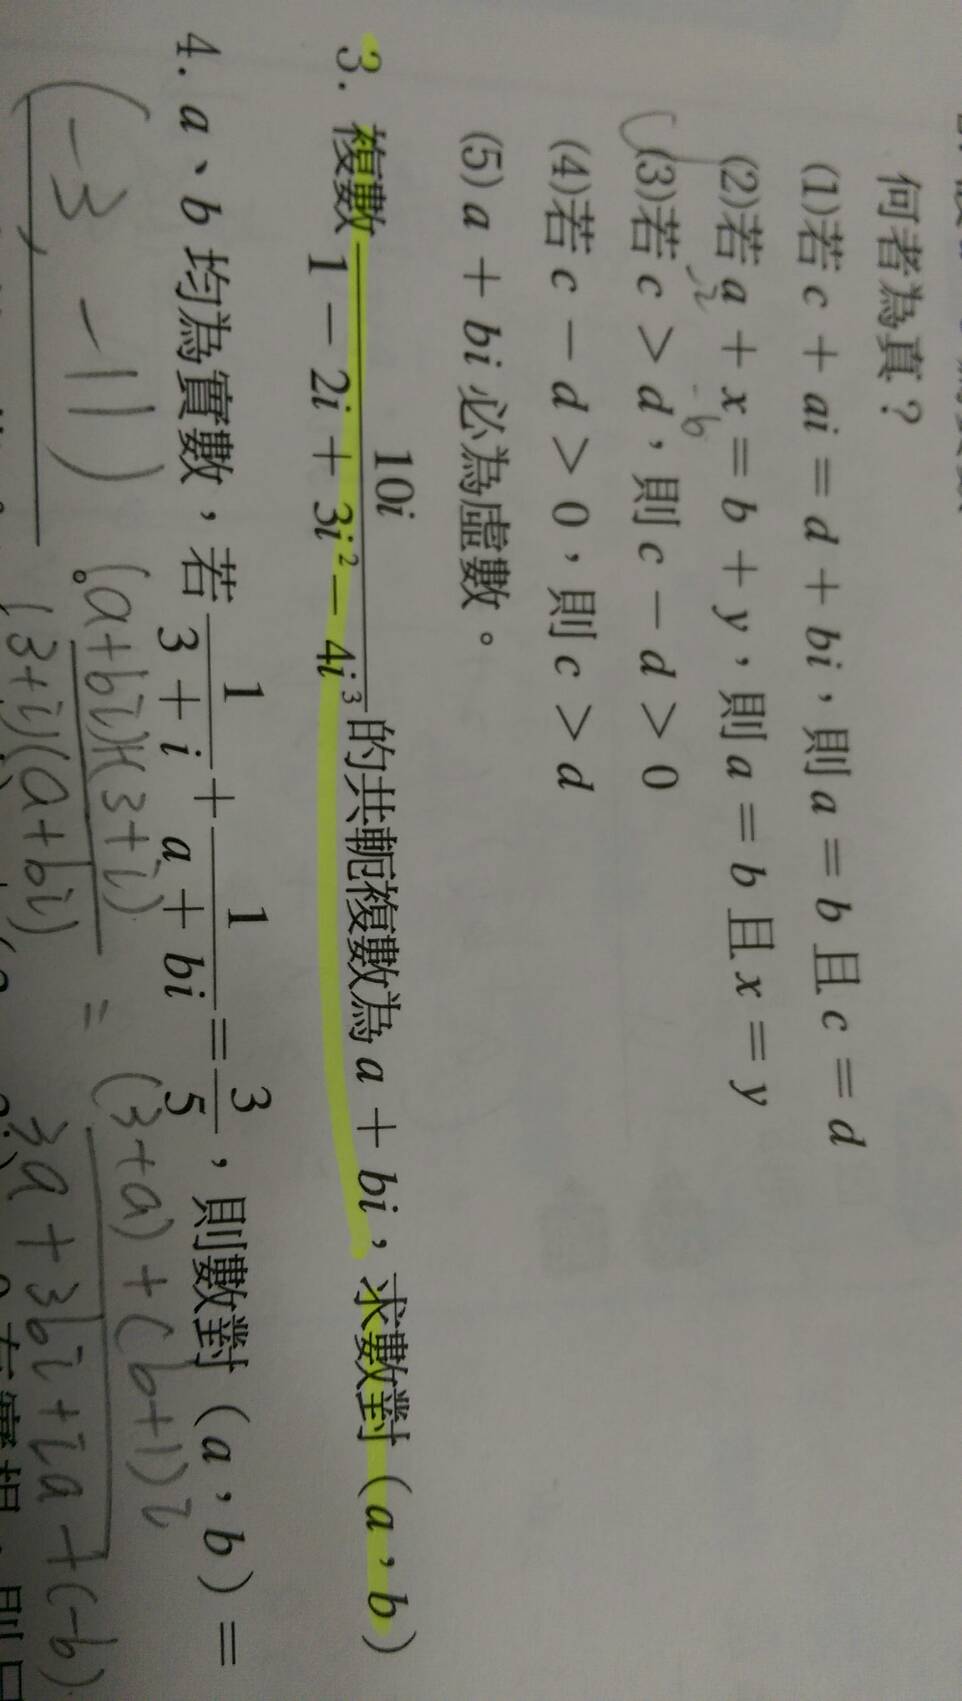 何者為真?
(1)若 c + ai = d + bi,則 a = b 且 c = d
(2)若 a + x = b + y,則 a = b 且 x = y
(3)若 c > d,則 c - d > 0
(4)若 c - d > 0,則 c > d
(5) a + bi 必為虛數。
3. 複數 10i / (1 - 2i + 3i² - 4i³) 的共軛複數為 a + bi,求數對(a,b)
4. a、b 均為實數,若 1/(3 + i) + 1/(a + bi) = 3/5,則數對(a,b)=
(-3, -11)
。
(a+bi)+(3+i) / (3+i)(a+bi) = (3+a)+(b+1)i / 3a+3bi+ia+(-b)